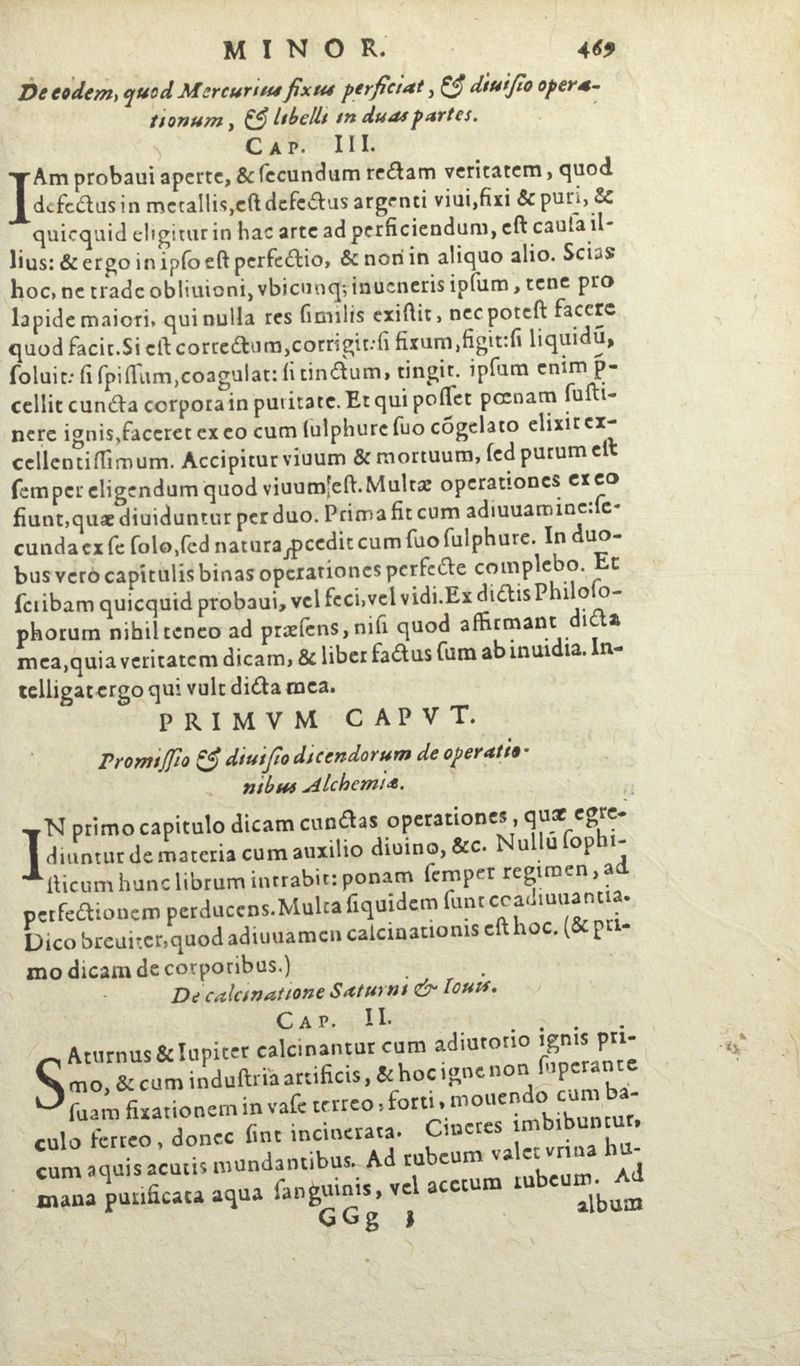 MINOR. 469
De eodem, quod Mercurius fixus perficiat, & diuisio opera-
tionum, & libelli in duas partes.
CAP. III.
IAm probaui aperte, & secundum rectam veritatem, quod
defectus in metallis, est defectus argenti viui, fixi & puri, &
quicquid eligitur in hac arte ad perficiendum, est causa il-
lius: & ergo in ipso est perfectio, & non in aliquo alio. Scias
hoc, ne trade obliuioni, vbicunq; inueneris ipsum, tene pro
lapide maiori, qui nulla res similis existit, nec potest facere
quod facit. Si est correctum, corrigit: si fixum, figit: si liquidũ,
soluit: si spissum, coagulat: si tinctum, tingit. ipsum enim p̱-
cellit cuncta corpora in puritate. Et qui posset pœnam susti-
nere ignis, faceret ex eo cum sulphure suo cõgelato elixir ex-
cellentissimum. Accipitur viuum & mortuum, sed purum est
semper eligendum quod viuum est. Multæ operationes ex eo
fiunt, quæ diuiduntur per duo. Prima fit cum adiuuamine: se-
cunda ex se solo, sed natura ꝓcedit cum suo sulphure. In duo-
bus vero capitulis binas operationes perfecte complebo. Et
scribam quicquid probaui, vel feci, vel vidi. Ex dictis Philoso-
phorum nihil teneo ad præsens, nisi quod affirmant dicta
mea, quia veritatem dicam, & liber factus sum ab inuidia. In-
telligat ergo qui vult dicta mea.
PRIMVM CAPVT.
Promissio & diuisio dicendorum de operatio-
nibus Alchemiæ.
IN primo capitulo dicam cunctas operationes, quæ egre-
diuntur de materia cum auxilio diuino, &c. Nullũ sophi-
sticum hunc librum intrabit: ponam semper regimen, ad
perfectionem perducens. Multa siquidem sunt coadiuuantia.
Dico breuiter, quod adiuuamen calcinationis est hoc. (& pri-
mo dicam de corporibus.)
De calcinatione Saturni & Iouis.
CAP. II.
SAturnus & Iupiter calcinantur cum adiutorio ignis pri-
mo, & cum industria artificis, & hoc igne non superante
suam fixationem in vase terreo, forti, mouendo cum ba-
culo ferreo, donec sint incinerata. Cineres imbibuntur,
cum aquis acutis mundantibus. Ad rubeum valet vrina hu-
mana purificata aqua sanguinis, vel acetum rubeum. Ad
GGg 3 album